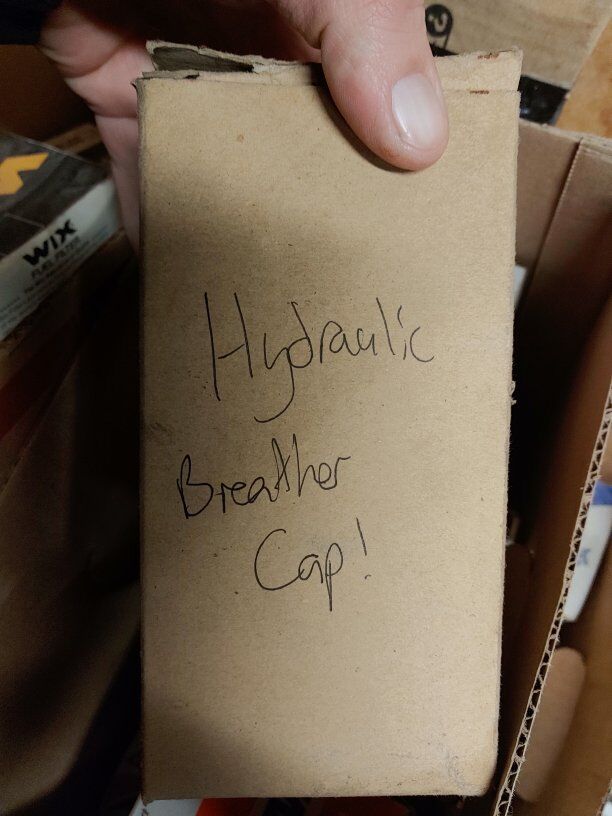 WIX
FUEL FILTER
Hydraulic
Breather
Cap!